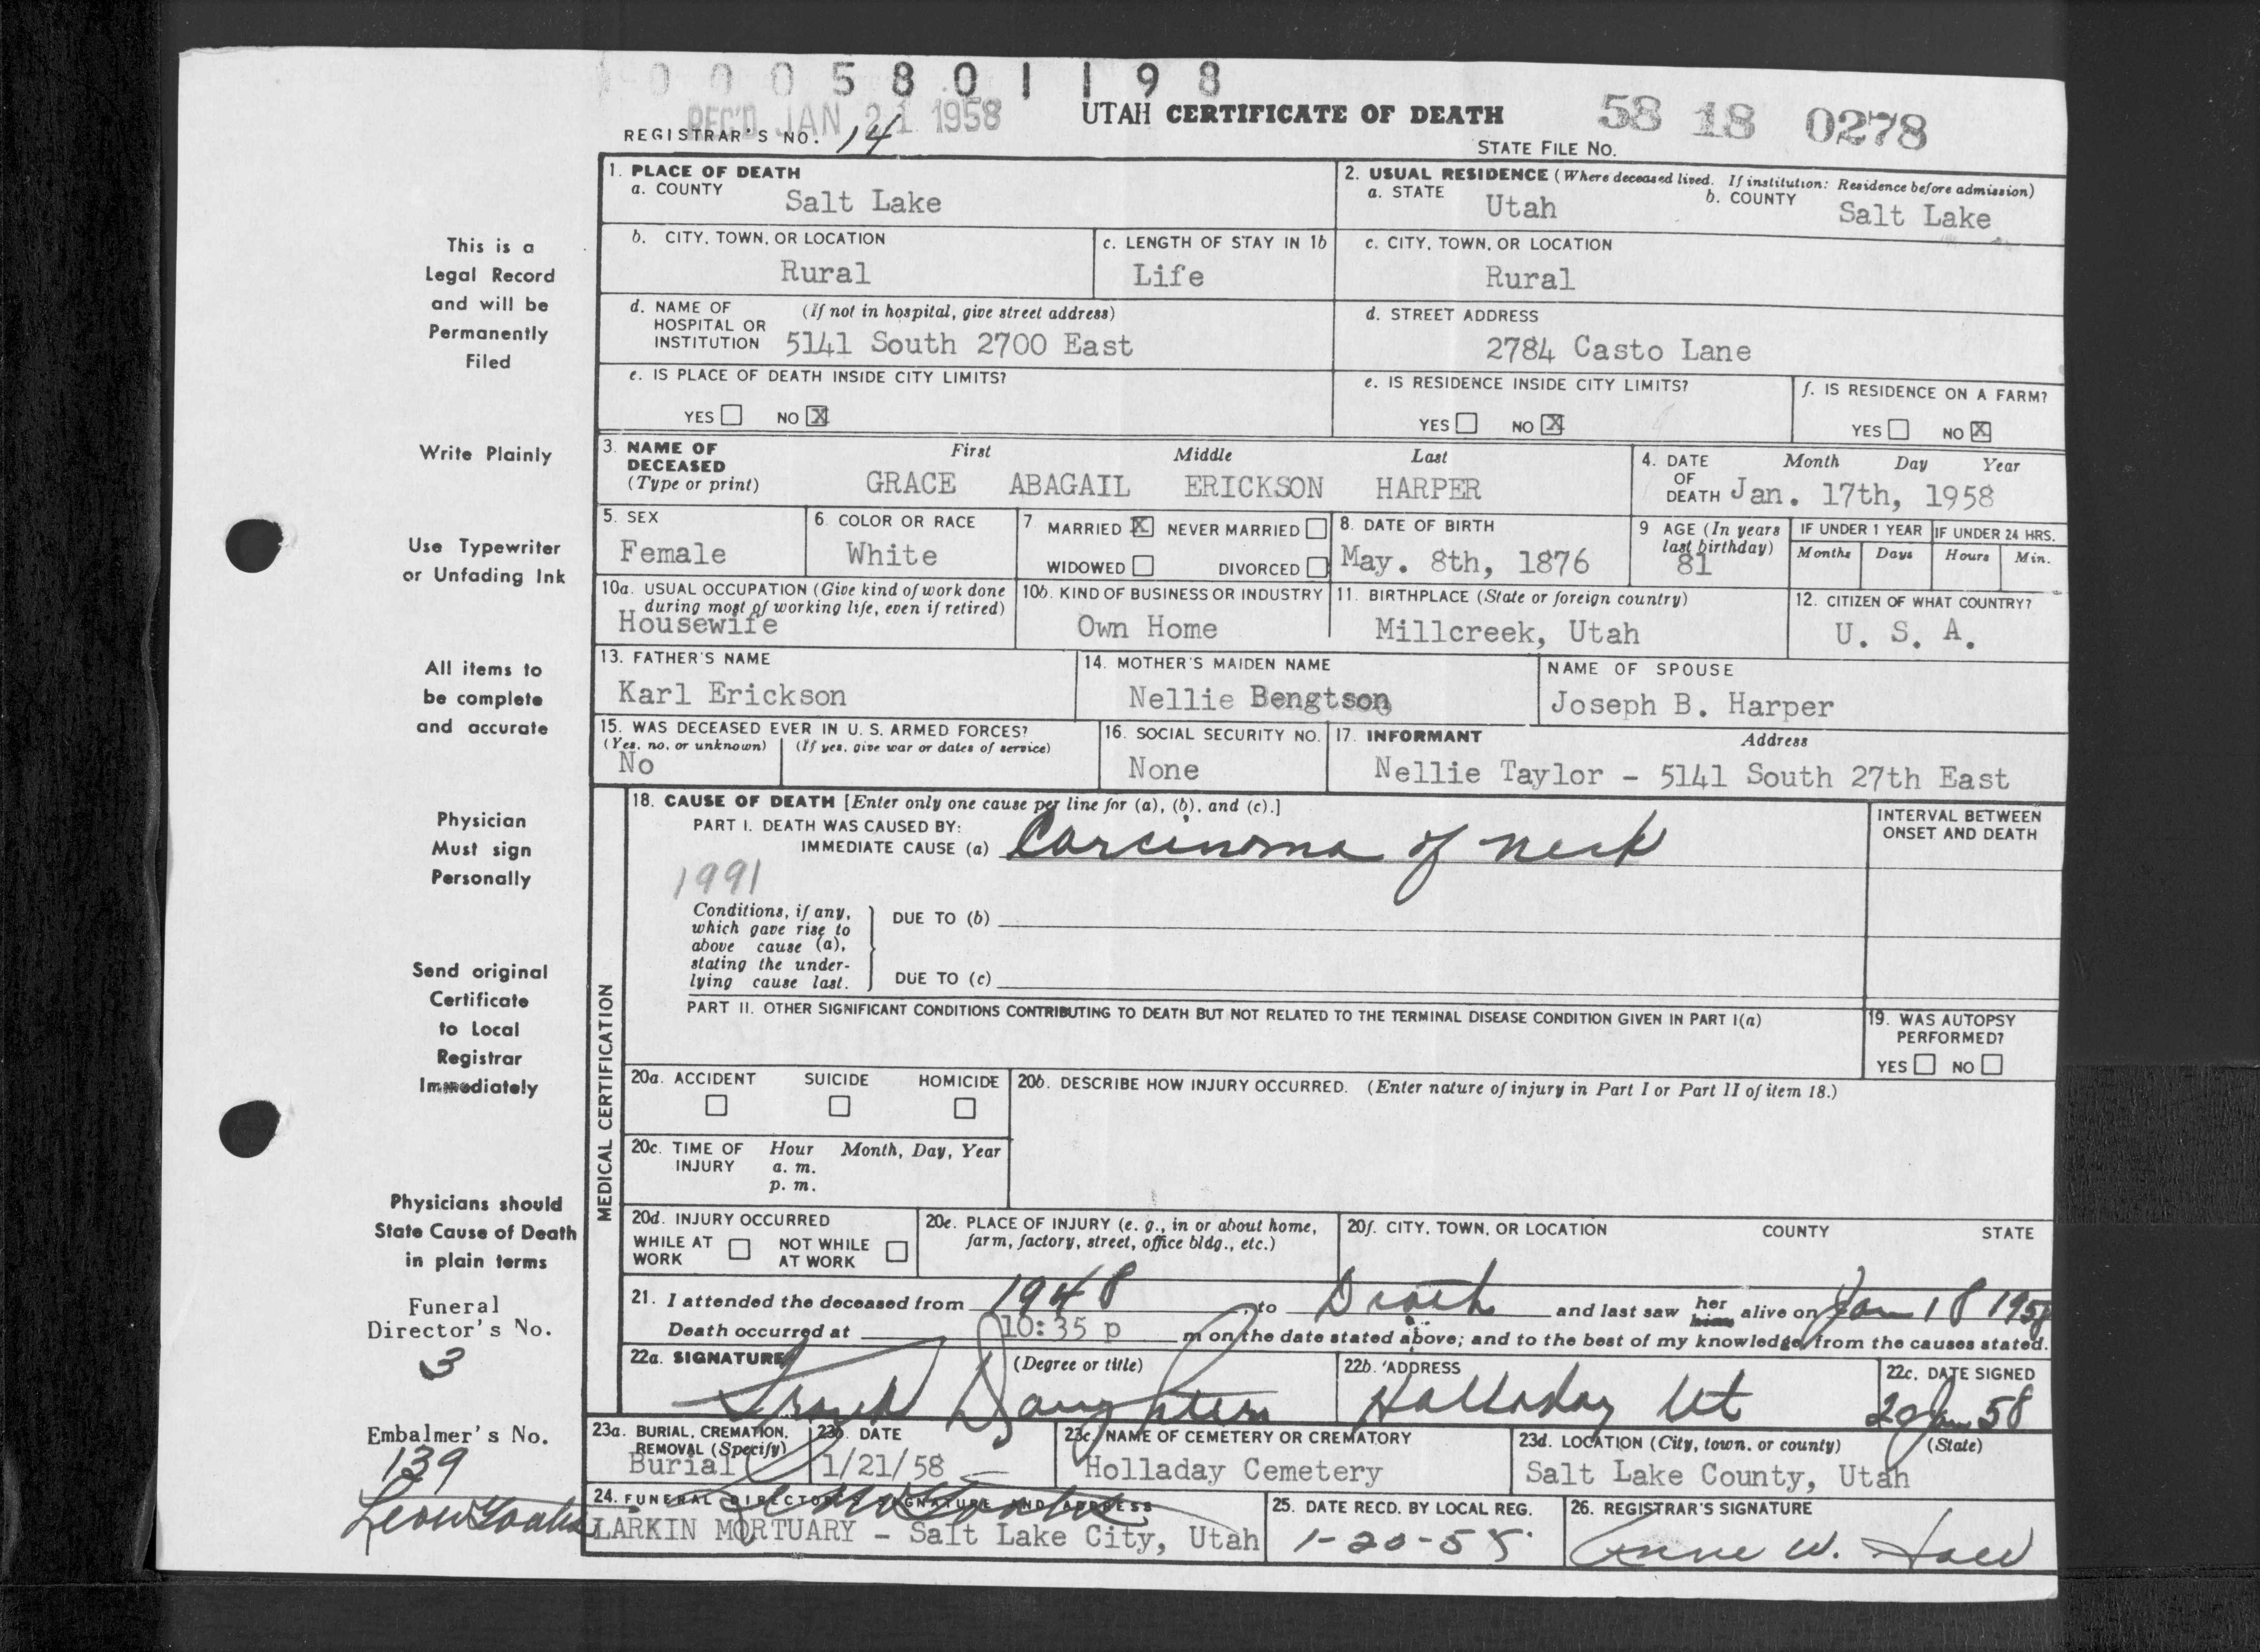 0 0 0 5 8 0 1 1 9 8
REC'D JAN 21 1958
UTAH CERTIFICATE OF DEATH
58 18 0278
REGISTRAR'S NO. 14
STATE FILE NO.
1. PLACE OF DEATH
a. COUNTY
Salt Lake
2. USUAL RESIDENCE (Where deceased lived. If institution: Residence before admission)
a. STATE Utah b. COUNTY Salt Lake
b. CITY, TOWN, OR LOCATION
Rural
c. LENGTH OF STAY IN 1b
Life
c. CITY, TOWN, OR LOCATION
Rural
d. NAME OF HOSPITAL OR INSTITUTION (If not in hospital, give street address)
5141 South 2700 East
d. STREET ADDRESS
2784 Casto Lane
e. IS PLACE OF DEATH INSIDE CITY LIMITS?
YES NO X
e. IS RESIDENCE INSIDE CITY LIMITS?
YES NO X
f. IS RESIDENCE ON A FARM?
YES NO X
3. NAME OF DECEASED (Type or print)
First Middle Last
GRACE ABAGAIL ERICKSON HARPER
4. DATE OF DEATH Month Day Year
Jan. 17th, 1958
5. SEX
Female
6. COLOR OR RACE
White
7. MARRIED X NEVER MARRIED
WIDOWED DIVORCED
8. DATE OF BIRTH
May. 8th, 1876
9 AGE (In years last birthday)
81
IF UNDER 1 YEAR
Months Days
IF UNDER 24 HRS.
Hours Min.
10a. USUAL OCCUPATION (Give kind of work done during most of working life, even if retired)
Housewife
10b. KIND OF BUSINESS OR INDUSTRY
Own Home
11. BIRTHPLACE (State or foreign country)
Millcreek, Utah
12. CITIZEN OF WHAT COUNTRY?
U. S. A.
13. FATHER'S NAME
Karl Erickson
14. MOTHER'S MAIDEN NAME
Nellie Bengtson
NAME OF SPOUSE
Joseph B. Harper
15. WAS DECEASED EVER IN U. S. ARMED FORCES?
(Yes, no, or unknown) (If yes, give war or dates of service)
No
16. SOCIAL SECURITY NO.
None
17. INFORMANT Address
Nellie Taylor - 5141 South 27th East
MEDICAL CERTIFICATION
18. CAUSE OF DEATH [Enter only one cause per line for (a), (b), and (c).]
PART I. DEATH WAS CAUSED BY:
IMMEDIATE CAUSE (a) Carcinoma of neck
INTERVAL BETWEEN ONSET AND DEATH
1991
Conditions, if any, which gave rise to above cause (a), stating the underlying cause last.
DUE TO (b)
DUE TO (c)
PART II. OTHER SIGNIFICANT CONDITIONS CONTRIBUTING TO DEATH BUT NOT RELATED TO THE TERMINAL DISEASE CONDITION GIVEN IN PART I(a)
19. WAS AUTOPSY PERFORMED?
YES NO
20a. ACCIDENT SUICIDE HOMICIDE
20b. DESCRIBE HOW INJURY OCCURRED. (Enter nature of injury in Part I or Part II of item 18.)
20c. TIME OF INJURY Hour Month, Day, Year
a. m.
p. m.
20d. INJURY OCCURRED
WHILE AT WORK NOT WHILE AT WORK
20e. PLACE OF INJURY (e. g., in or about home, farm, factory, street, office bldg., etc.)
20f. CITY, TOWN, OR LOCATION COUNTY STATE
21. I attended the deceased from 1948 to Death and last saw her him alive on Jan 18 1958
Death occurred at 10:35 p m on the date stated above; and to the best of my knowledge, from the causes stated.
22a. SIGNATURE (Degree or title)
22b. ADDRESS
Holladay Ut
22c. DATE SIGNED
20 Jan 58
23a. BURIAL, CREMATION, REMOVAL (Specify)
Burial
23b. DATE
1/21/58
23c. NAME OF CEMETERY OR CREMATORY
Holladay Cemetery
23d. LOCATION (City, town, or county) (State)
Salt Lake County, Utah
24. FUNERAL DIRECTOR'S SIGNATURE AND ADDRESS
LARKIN MORTUARY - Salt Lake City, Utah
25. DATE RECD. BY LOCAL REG.
1-20-58
26. REGISTRAR'S SIGNATURE
Anne W.
This is a
Legal Record
and will be
Permanently
Filed
Write Plainly
Use Typewriter
or Unfading Ink
All items to
be complete
and accurate
Physician
Must sign
Personally
Send original
Certificate
to Local
Registrar
Immediately
Physicians should
State Cause of Death
in plain terms
Funeral
Director's No.
3
Embalmer's No.
139